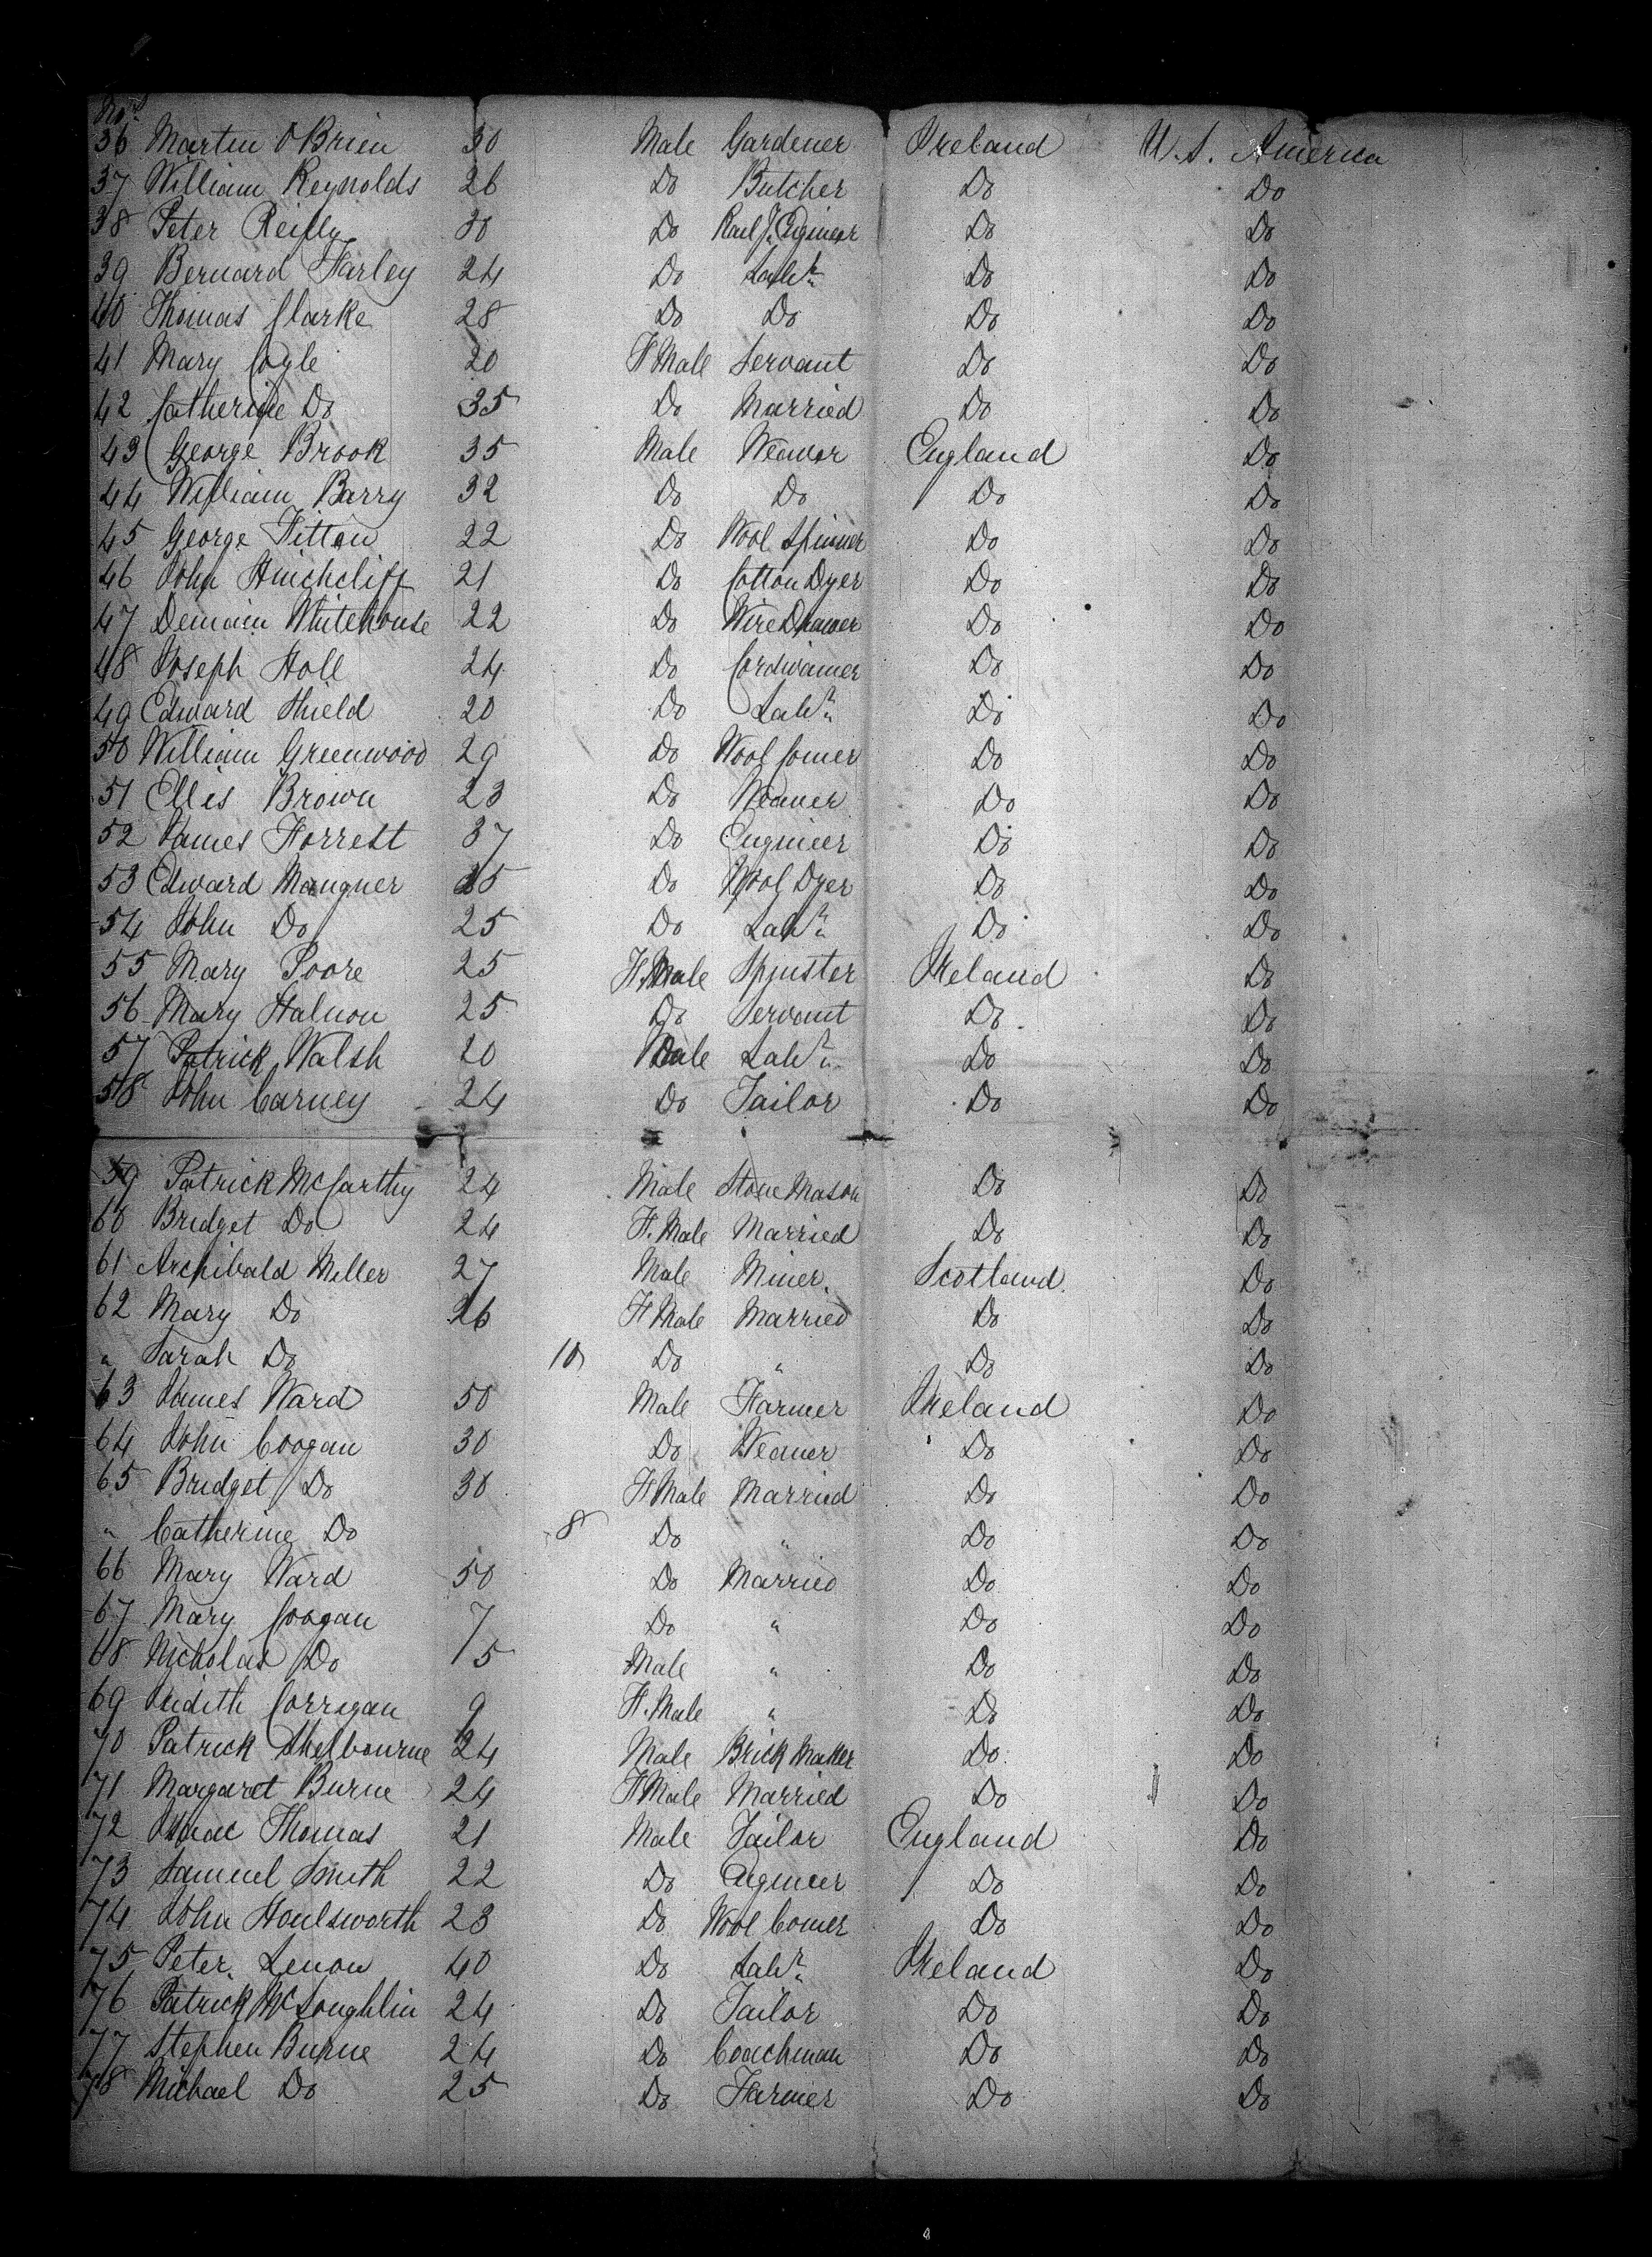 Nos
36 Martin O'Brien 30 Male Gardener Ireland U.S. America
37 William Reynolds 26 Do Butcher Do Do
38 Peter Reilly 30 Do Do Do
39 Bernard Farley 24 Do Labr Do Do
40 Thomas Clarke 28 Do Do Do Do
41 Mary Coyle 20 F Male Servant Do Do
42 Catherine Do 35 Do Married Do Do
43 George Brook 35 Male Weaver England Do
44 William Barry 32 Do Do Do Do
45 George Fitton 22 Do Wool Spinner Do Do
46 John Hinchcliff 21 Do Cotton Dyer Do Do
47 Whitehouse 22 Do Wire Drawer Do Do
48 Joseph Holl 24 Do Cordwainer Do Do
49 Edward Shield 20 Do Labr Do Do
50 William Greenwood 29 Do Wool Comer Do Do
51 Ellis Brown 23 Do Weaver Do Do
52 James Forrest 37 Do Engineer Do Do
53 Edward Maugner Do Wool Dyer Do Do
54 John Do 25 Do Labr Do Do
55 Mary Poore 25 F. Male Spinster Ireland Do
56 Mary Halnon 25 Do Servant Do Do
57 Patrick Walsh 20 Male Labr Do Do
58 John Carney 24 Do Tailor Do Do
59 Patrick McCarthy 24 Male Stone Mason Do Do
60 Bridget Do 24 F. Male Married Do Do
61 Archibald Miller 27 Male Miner Scotland Do
62 Mary Do 26 F Male Married Do Do
" Sarah Do 10 Do " Do Do
63 James Ward 50 Male Farmer Ireland Do
64 John Coogan 30 Do Weaver Do Do
65 Bridget Do 30 F Male Married Do Do
" Catherine Do 8 Do " Do Do
66 Mary Ward 50 Do Married Do Do
67 Mary Coogan 7 Do " Do Do
68 Nicholas Do 5 Male " Do Do
69 Judith Corrigan 9 F. Male " Do Do
70 Patrick Shelbourne 24 Male Brick Maker Do Do
71 Margaret Burne 24 F Male Married Do Do
72 Isaac Thomas 21 Male Tailor England Do
73 Samuel Smith 22 Do Engineer Do Do
74 John Houlsworth 23 Do Wool Comer Do Do
75 Peter Lenon 40 Do Labr Ireland Do
76 Patrick McLoughlin 24 Do Tailor Do Do
77 Stephen Burne 24 Do Coachman Do Do
78 Michael Do 25 Do Farmer Do Do